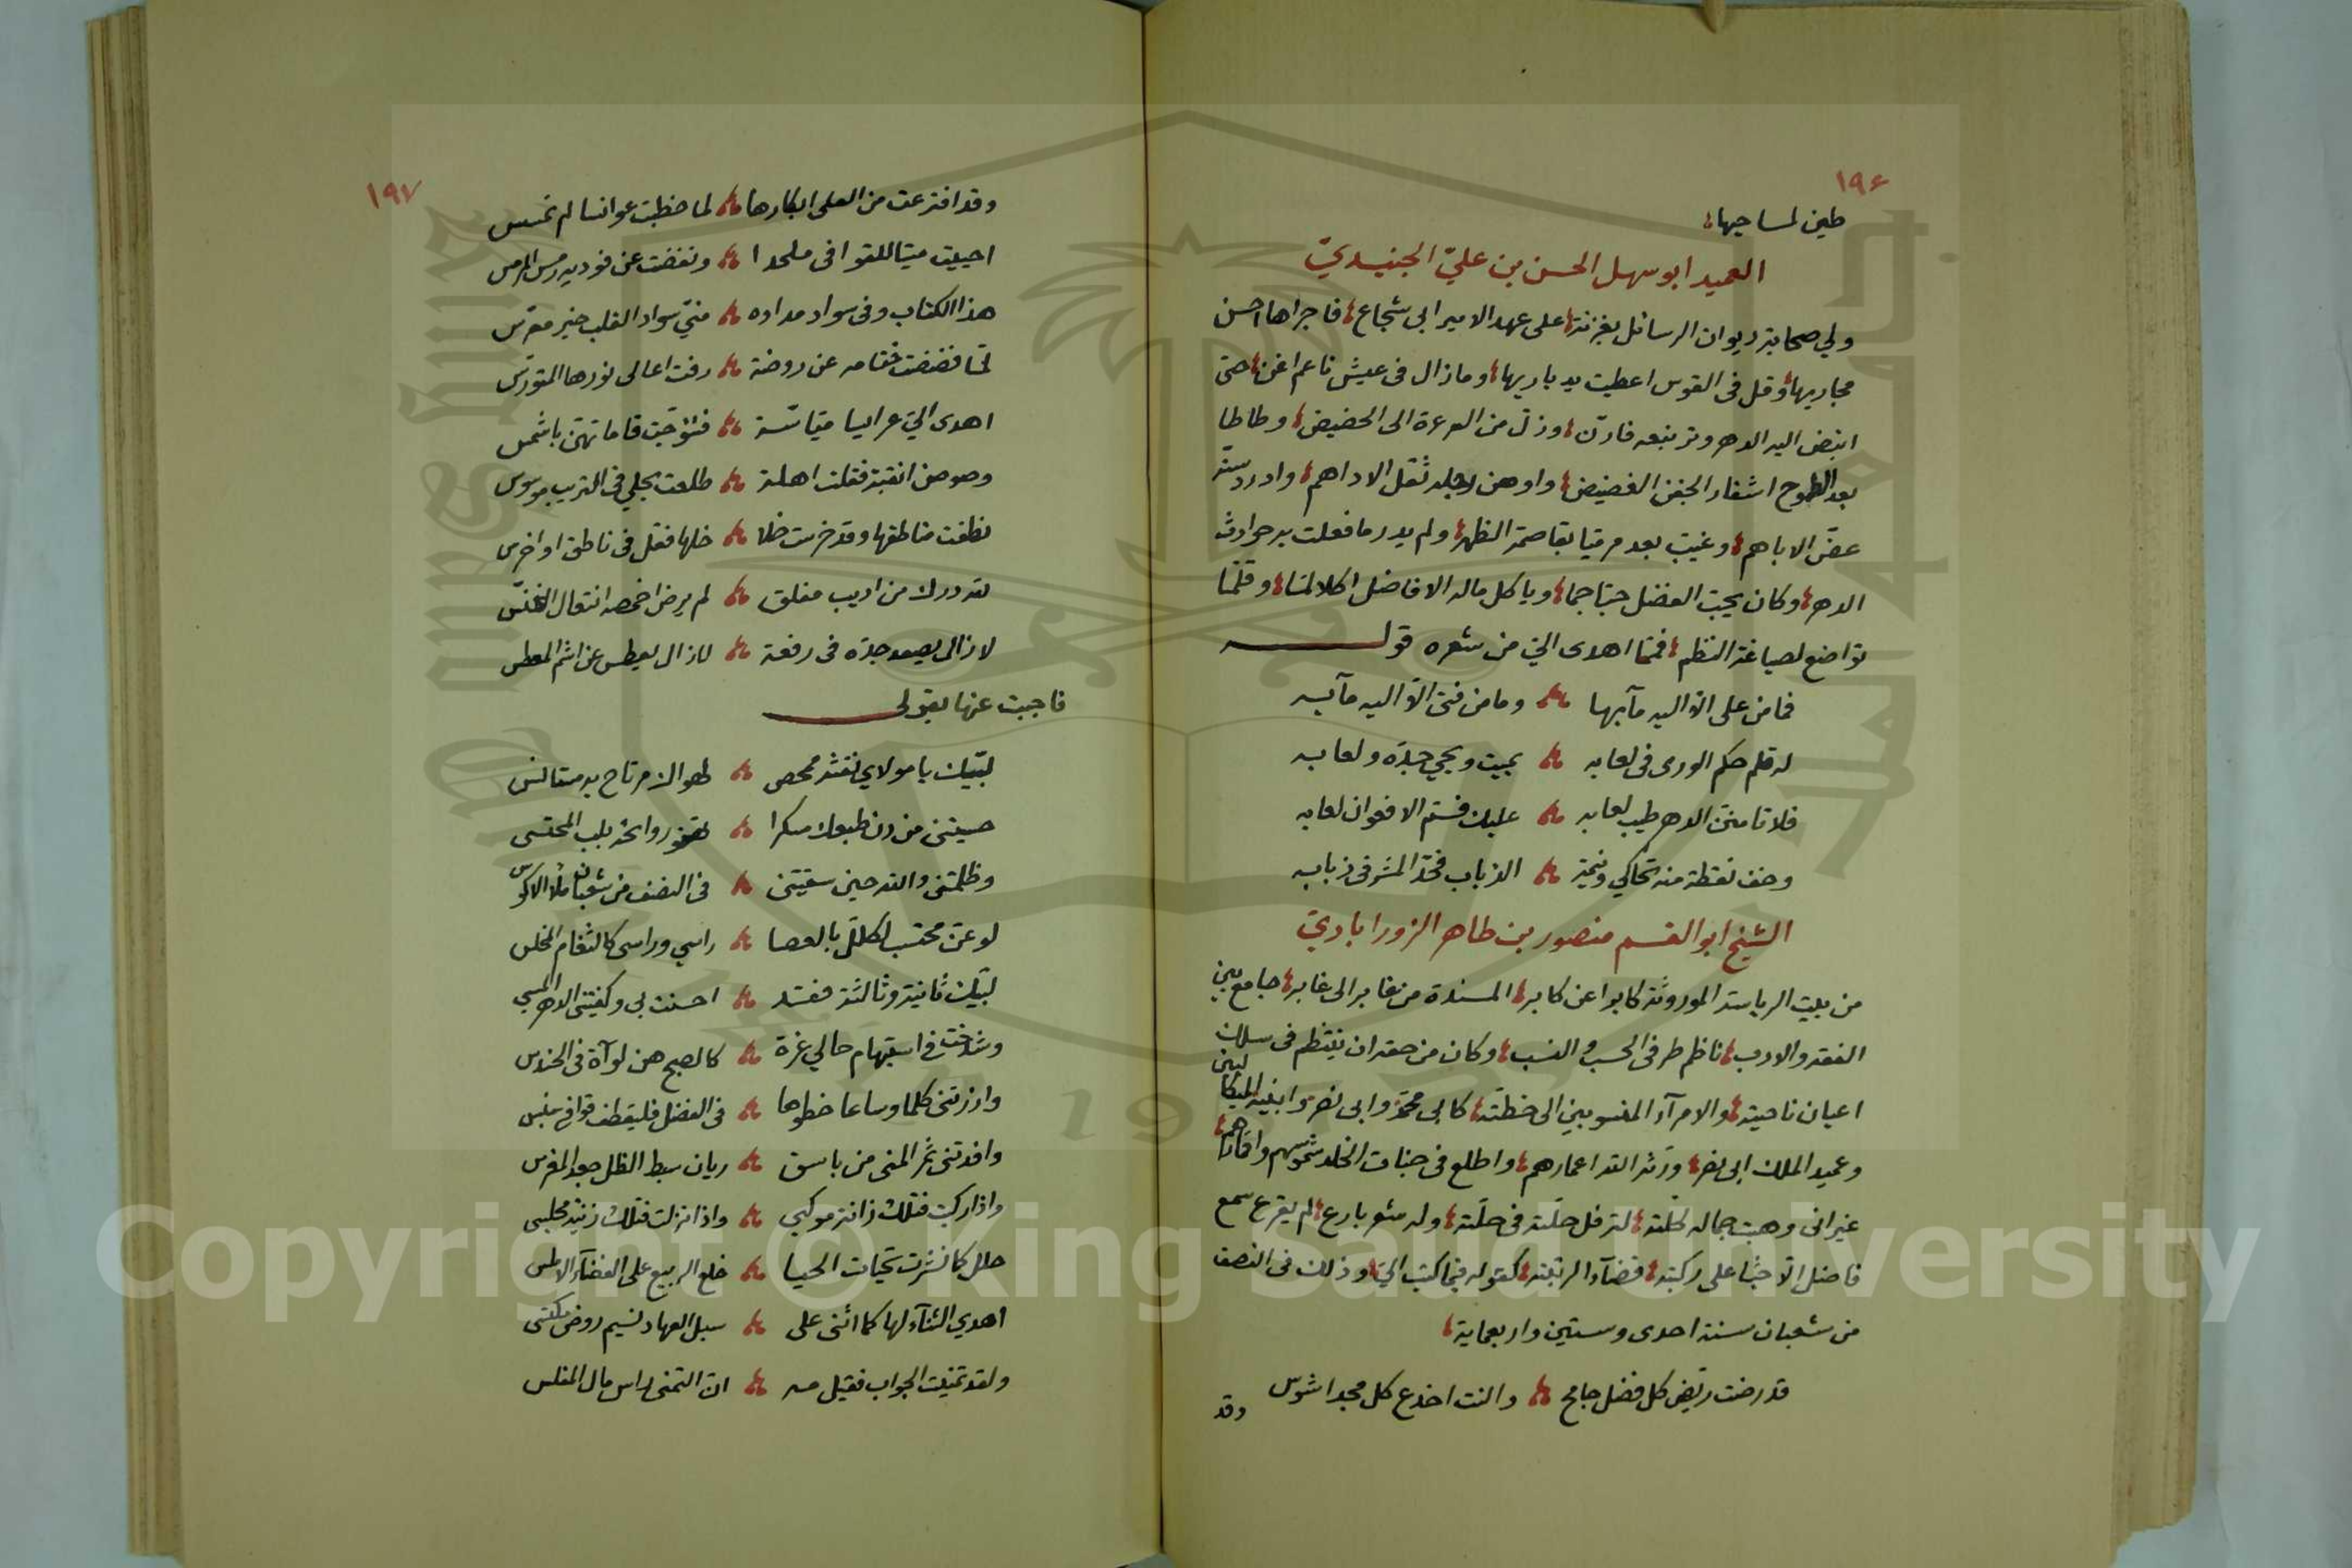 ١٩٦
طين لمساحيها
العميد ابو سهل الحسن بن عليّ الجنيديّ
ولي صحابة ديوان الرسائل بغزنة على عهد الامير ابى شجاع فاجراها احسن
مجاريها وقل فى القوس اعطيت يد باريها وما زال فى عيش ناعم اغن حتى
انبض اليه الدهر وتر نبعه فارنّ وزلّ من العرعرة الى الحضيض وطاطا
بعد الطموح اشفار الجفن الغضيض واوهن رجله ثقل الاداهم وادردسنّه
عضّ الاباهم وغيب بعد مرميا بقاصمة الظهر ولم يدر ما فعلت به حوادث
الدهر وكان يحبّ الفضل حبّا جما وياكل ماله الافاضل اكلا لمّا وقلّما
تواضع لصياغة النظم فممّا اهدى اليّ من شعره قوله
فما من على الاّ اليه مآبها وما من فتى الاّ اليه مآبه
له قلم حكم الورى فى لعابه يميت ويحيي جبدّه ولعابه
فلا تامننّ الدهر طيب لعابه عليك فسمّ الافعوان لعابه
وخف نقطة منه تحاكي ونيمة الذباب فحدّ المشرفى ذبابه
الشيخ ابو القسم منصور بن طاهر الزورابادي
من بيت الرياسة الموروثة كابرا عن كابر المسندة من غابر الى غابر جامع بين
الفقه والادب ناظم طرفى الحسب والنسب وكان من حقه ان ينتظم فى سلك
اعيان ناحيته والامرآء المنسوبين الى خطّته كابى محمّد وابى نصر وابنيه الميكاليين
وعميد الملك ابى نصر ورّثه الله اعمارهم واطلع فى جنات الخلد شموسهم واقمارهم
غير انى وهبت جماله لخلّته لترفل حلّته فى حلّته وله شعر بارع لم يقرع سمع
فاضل الاّ حثا على ركبته قضآء الرتبته كقوله فيما كتب اليّ وذلك فى النصف
من شعبان سنة احدى وستين واربعماية
قد رضت ريّض كل فضل جامح والنت اخدع كل مجد اشوس
وقد
١٩٧
وقد افترعت من العلى ابكارها لما خطبت عوانسا لم تمسس
احييت ميتا للقوافى ملحدا ونفضت عن فوديه رمس المرمس
هذا الكتاب وفى سواد مداده منّي سواد القلب خير معرّس
لمّا فضضت ختامه عن روضة رفت اعالى نورها المتورّس
اهدى اليّ عرايسا ميّاسة فتوّجت قاماتهنّ باشمس
وصوصن انقبة فقلت اهلة طلعت بحلي فى التريب موسوس
نطقت مناطقها وقد خرست خلا خلها فقل فى ناطق او اخرس
لله درك من اديب مفلق لم يرض اخمصه انتعال الخنّس
لا زال يصعد جدّه فى رفعة لا زال يعطس عن اشم المعطس
فاجبت عنها بقولى
لبّيك يا مولاي نفثة محص طوالا مرتاح به مستانس
حسيتنى من دن طبعك مسكرا تقفز روائحه بلب المحتسى
وظلمتنى والله حين سقيتنى فى النصف من شعبان ملأ الاكؤس
لو عنّ محتسب لكلّل بالعصا راسي وراسى كالثغام المخلس
لبّيك ثانية وثالثة فقد احسنت بى وكفيتنى الدهر المسي
وشدخت فى استبهام حالي غرّة كالصبح هزّ لوآه فى الحندس
وازرتنى كلما وساعا خطوها فى الفضل فليقطف قوافى مبنس
وافدتنى ثمر المنى من باسق ريان سبط الظل جعد المغرس
واذا ركبت فتلك زانة موكبي واذا نزلت فتلك زينة مجلسى
حلل كما نشرت تحيات الحيا خلع الربيع على الفضآء الاملس
اهدي الثنآء لها كما اثنى على سبل العهاد نسيم روض مكتسى
ولقد تمنيت الجواب فقيل مه انّ التمنى راس مال المفلس